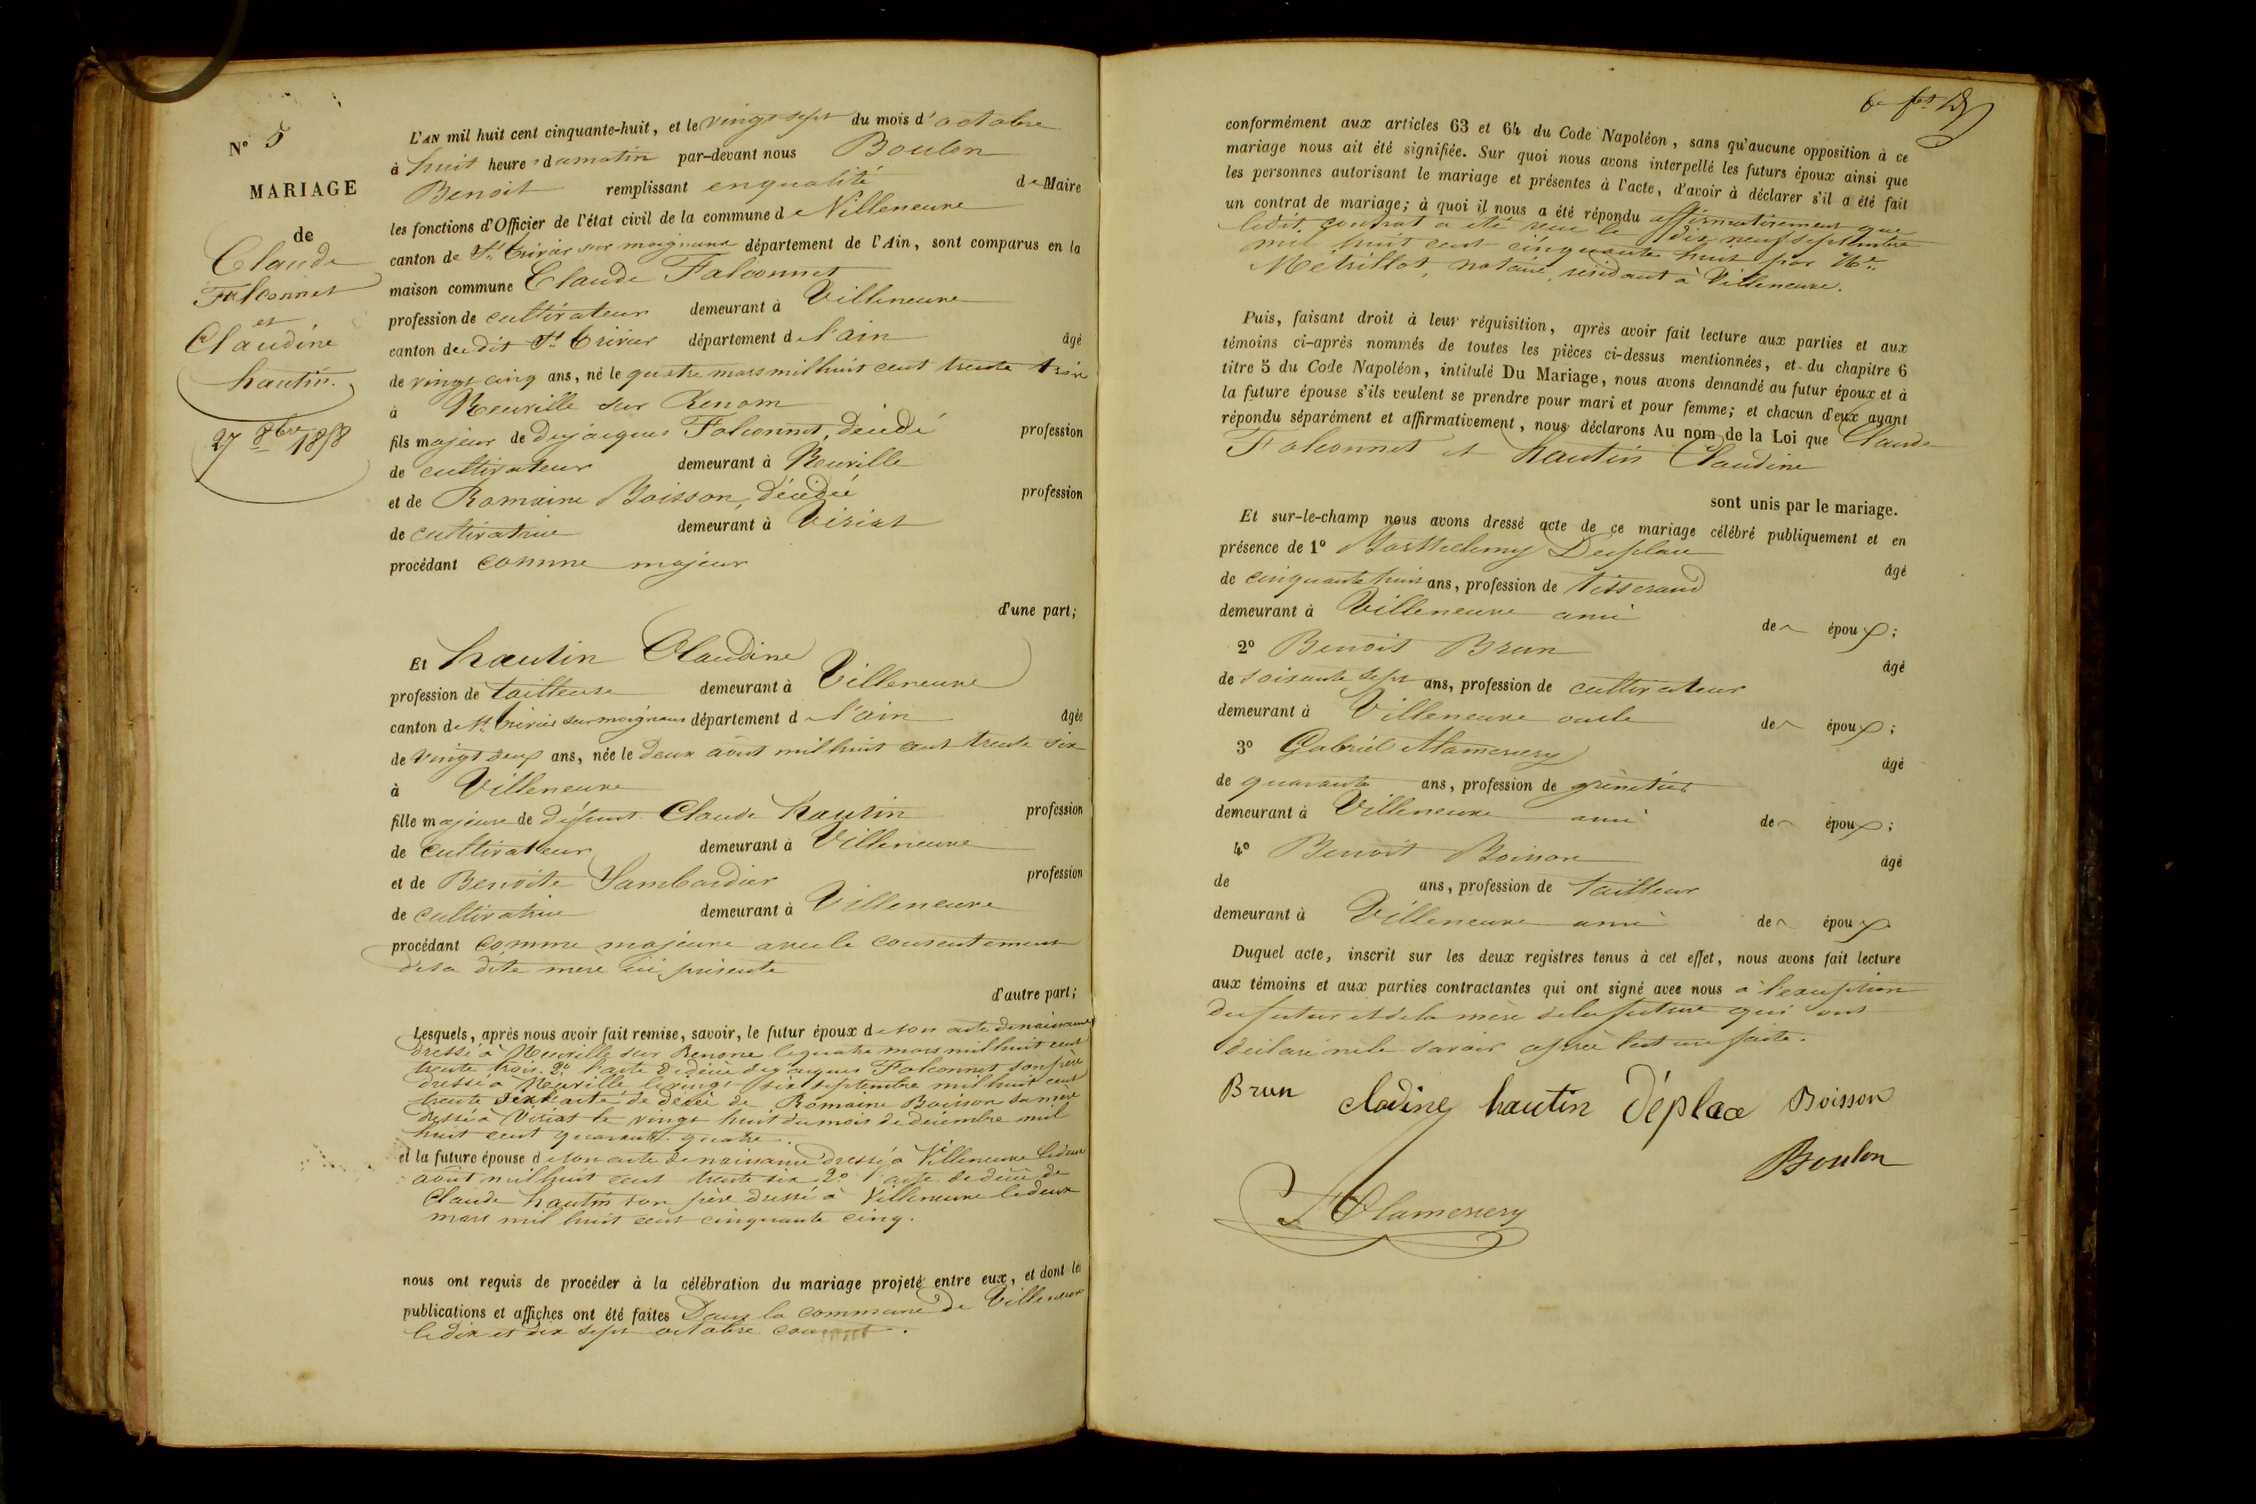 N° 5
MARIAGE
de
Claude
Falconnet
et
Claudine
hautin.
27 8bre 1858
L'AN mil huit cent cinquante-huit, et le vingt sept du mois d'octobre
à huit heures du matin par-devant nous Boulon
Benoit remplissant en qualité de Maire
les fonctions d'Officier de l'état civil de la commune de Villeneuve
canton de St. Trivier sur moignans département de l'Ain, sont comparus en la
maison commune Claude Falconnet
profession de cultivateur demeurant à Villeneuve
canton de dit St. Trivier département de l'ain âgé
de vingt cinq ans, né le quatre mars mil huit cent trente trois
à Neuville sur Renom
fils majeur de Falconnet, décédé profession
de cultivateur demeurant à Neuville
et de Romaine Boisson, décédée profession
de cultivatrice demeurant à Viriat
procédant comme majeur
d'une part;
Et hautin Claudine
profession de tailleuse demeurant à Villeneuve
canton de St. Trivier sur moignans département de l'ain âgée
de vingt deux ans, née le deux août mil huit cent trente six
à Villeneuve
fille majeure de défunt Claude hautin profession
de cultivateur demeurant à Villeneuve
et de Benoite Sambardier profession
de cultivatrice demeurant à Villeneuve
procédant comme majeure avec le consentement
de sa dite mère ici présente
d'autre part;
Lesquels, après nous avoir fait remise, savoir, le futur époux de son acte de naissance
dressé à Neuville sur Renone le quatre mars mil huit cent
trente trois. 2° l'acte de décès de Falconnet son père
dressé à Neuville le vingt six septembre mil huit cent
trente six l'acte de décès de Romaine Boisson sa mère
dressé à Viriat le vingt huit du mois de décembre mil
huit cent quarante quatre.
et la future épouse de son acte de naissance dressé à Villeneuve le deux
août mil huit cent trente six 2° l'acte de décès de
Claude hautin son père dressé à Villeneuve le deux
mars mil huit cent cinquante cinq.
nous ont requis de procéder à la célébration du mariage projeté entre eux, et dont les
publications et affiches ont été faites Dans la commune de Villeneuve
le dix et dix sept octobre courant.
conformément aux articles 63 et 64 du Code Napoléon, sans qu'aucune opposition à ce
mariage nous ait été signifiée. Sur quoi nous avons interpellé les futurs époux ainsi que
les personnes autorisant le mariage et présentes à l'acte, d'avoir à déclarer s'il a été fait
un contrat de mariage; à quoi il nous a été répondu affirmativement que
ledit contrat a été reçu le dix neuf septembre
mil huit cent cinquante huit par Me
Métrillot, notaire, résidant à Villeneuve.
Puis, faisant droit à leur réquisition, après avoir fait lecture aux parties et aux
témoins ci-après nommés de toutes les pièces ci-dessus mentionnées, et du chapitre 6
titre 5 du Code Napoléon, intitulé Du Mariage, nous avons demandé au futur époux et à
la future épouse s'ils veulent se prendre pour mari et pour femme; et chacun d'eux ayant
répondu séparément et affirmativement, nous déclarons Au nom de la Loi que Claude
Falconnet et hautin Claudine
sont unis par le mariage.
Et sur-le-champ nous avons dressé acte de ce mariage célébré publiquement et en
présence de 1° Barthelemy Desplace
âgé
de cinquante huit ans, profession de tisserand
demeurant à Villeneuve ami de époux;
2° Benoit Brun
âgé
de soixante sept ans, profession de cultivateur
demeurant à Villeneuve oncle de époux;
3° Gabriel Alamercery
âgé
de quarante ans, profession de
demeurant à Villeneuve ami de époux;
4° Benoit Boisson
âgé
de ans, profession de tailleur
demeurant à Villeneuve ami de époux
Duquel acte, inscrit sur les deux registres tenus à cet effet, nous avons fait lecture
aux témoins et aux parties contractantes qui ont signé avec nous à l'exception
du futur et de la mère de la future qui ont
déclaré ne le savoir après lecture faite.
Brun cladine hautin déplace Boisson
Boulon
Alamercery